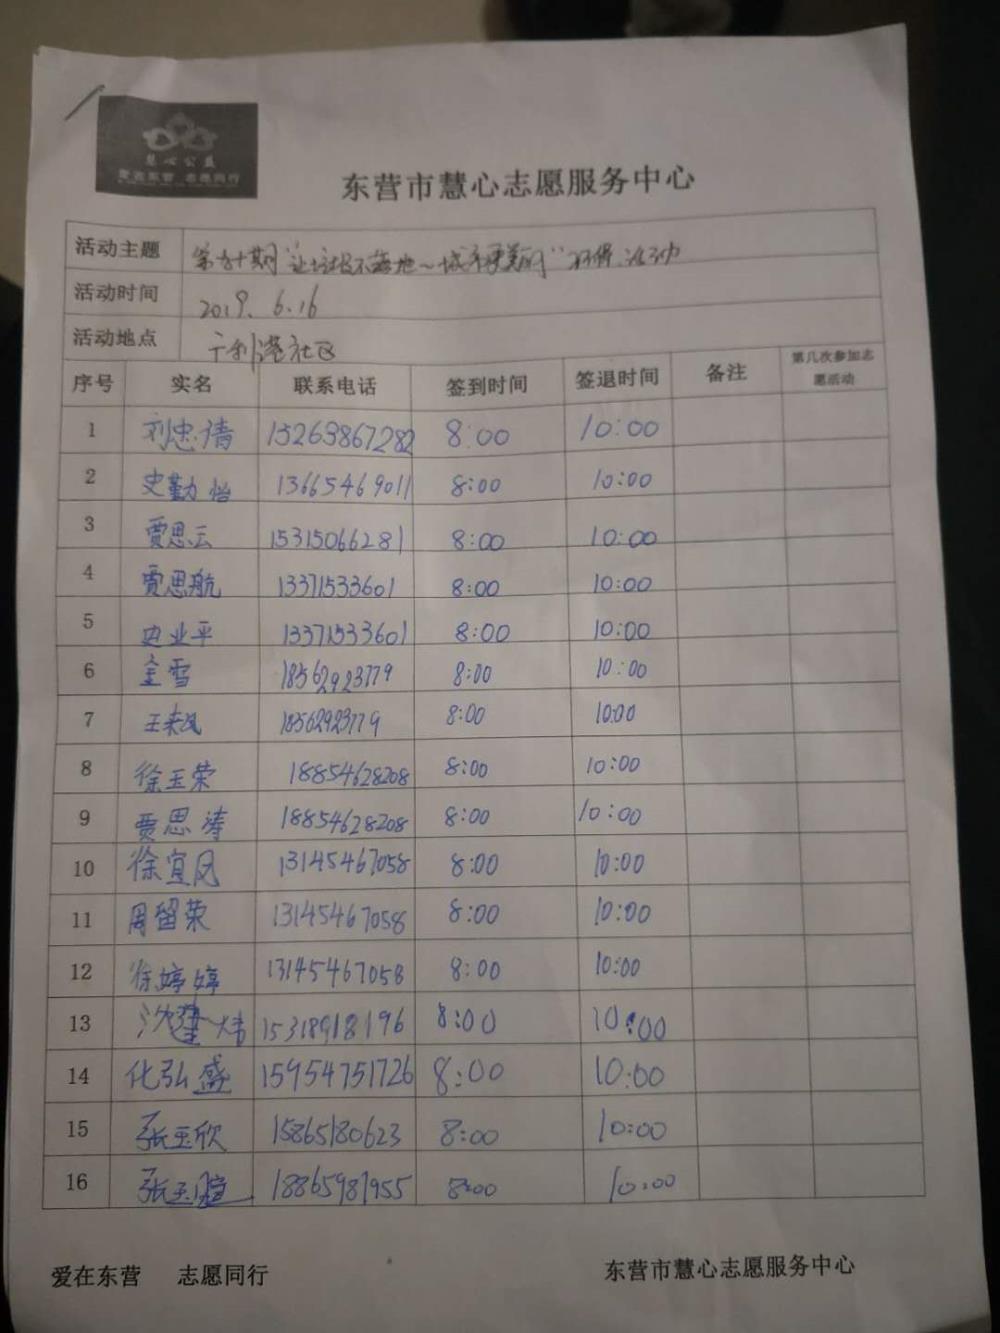 慧心公益
爱在东营 志愿同行
东营市慧心志愿服务中心
活动主题 第九十期"让垃圾不落地~城市更美丽"环保活动
活动时间 2019.6.16
活动地点 广利港社区
序号 实名 联系电话 签到时间 签退时间 备注 第几次参加志愿活动
1 刘忠倩 15263867282 8:00 10:00
2 史勤怡 13665469011 8:00 10:00
3 贾思云 15315066281 8:00 10:00
4 贾思航 13371533601 8:00 10:00
5 边业平 13371533601 8:00 10:00
6 金雪 18562923779 8:00 10:00
7 王来凤 18562923779 8:00 10:00
8 徐玉荣 18854628208 8:00 10:00
9 贾思涛 18854628208 8:00 10:00
10 徐宜凤 13145467058 8:00 10:00
11 周留荣 13145467058 8:00 10:00
12 徐婷婷 13145467058 8:00 10:00
13 沈 15318918196 8:00 10:00
14 化弘盛 15954751726 8:00 10:00
15 张玉欣 15865180623 8:00 10:00
16 张玉 18865981955 8:00 10:00
爱在东营 志愿同行 东营市慧心志愿服务中心